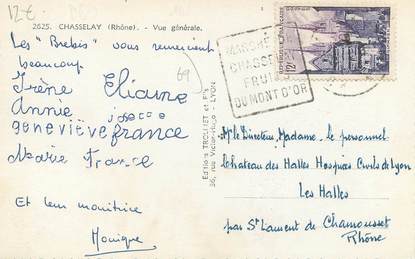 12€
2625. CHASSELAY (Rhône). - Vue générale.
Les "Brebis" vous remercient
beaucoup
69
Irène Eliane
Annie
geneviève france
Marie France
Et leur monitrice
Monique
Editions TROLLIET et Fils
36, rue Victor-Hugo - LYON
MARCHÉ
CHASSE
FRUI
DU MONT D'OR
12F
Mr le Directeur, Madame. Le personnel
Château des Halles Hospices Civils de Lyon
Les Halles
par St Laurent de Chamousset
Rhône